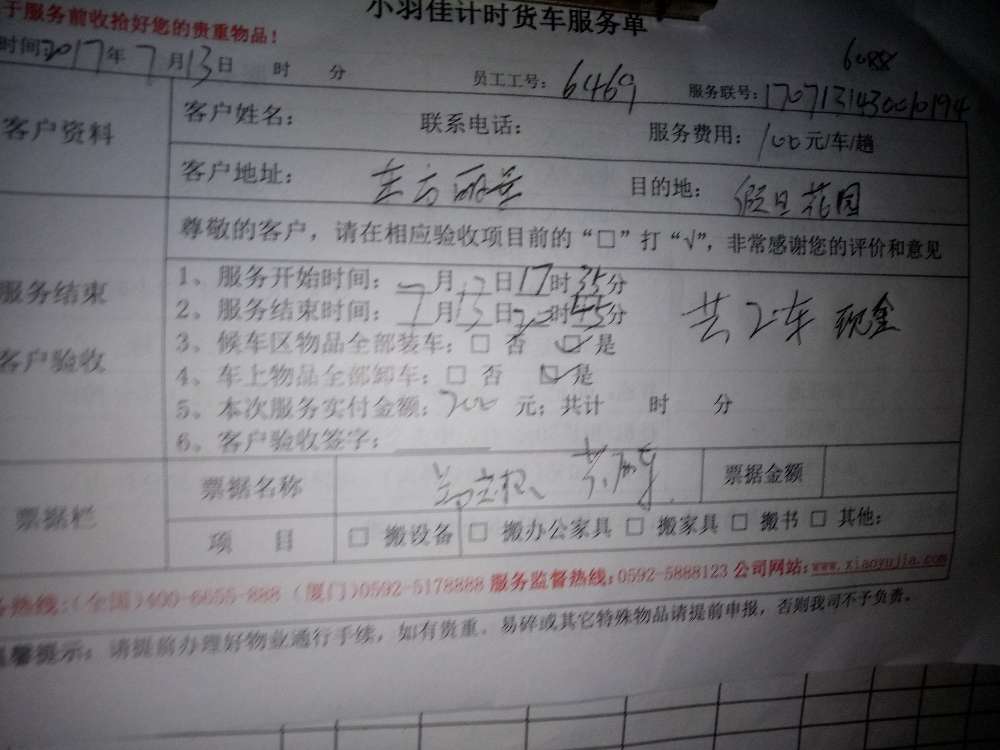 于服务前收拾好您的贵重物品！
小羽佳计时货车服务单
6088
时间2017年7月13日 时 分 员工工号：6469 服务联号：17071314300010194
客户资料 客户姓名： 联系电话： 服务费用：100元/车/趟
客户地址：东方丽景 目的地：假日花园
尊敬的客户，请在相应验收项目前的“□”打“√”，非常感谢您的评价和意见
服务结束
客户验收
1、服务开始时间：7月13日17时35分
2、服务结束时间：7月13日20时55分
共2车 现金
3、候车区物品全部装车：□ 否 ☑是
4、车上物品全部卸车：□ 否 ☑是
5、本次服务实付金额：200 元；共计 时 分
6、客户验收签字：
票据栏 票据名称 票据金额
项 目 □ 搬设备 □ 搬办公家具 □ 搬家具 □ 搬书 □ 其他：
热线：（全国）400-6655-888（厦门）0592-5178888 服务监督热线：0592-5888123 公司网站：www.xiaoyujia.com
温馨提示：请提前办理好物业通行手续，如有贵重、易碎或其它特殊物品请提前申报，否则我司不予负责。